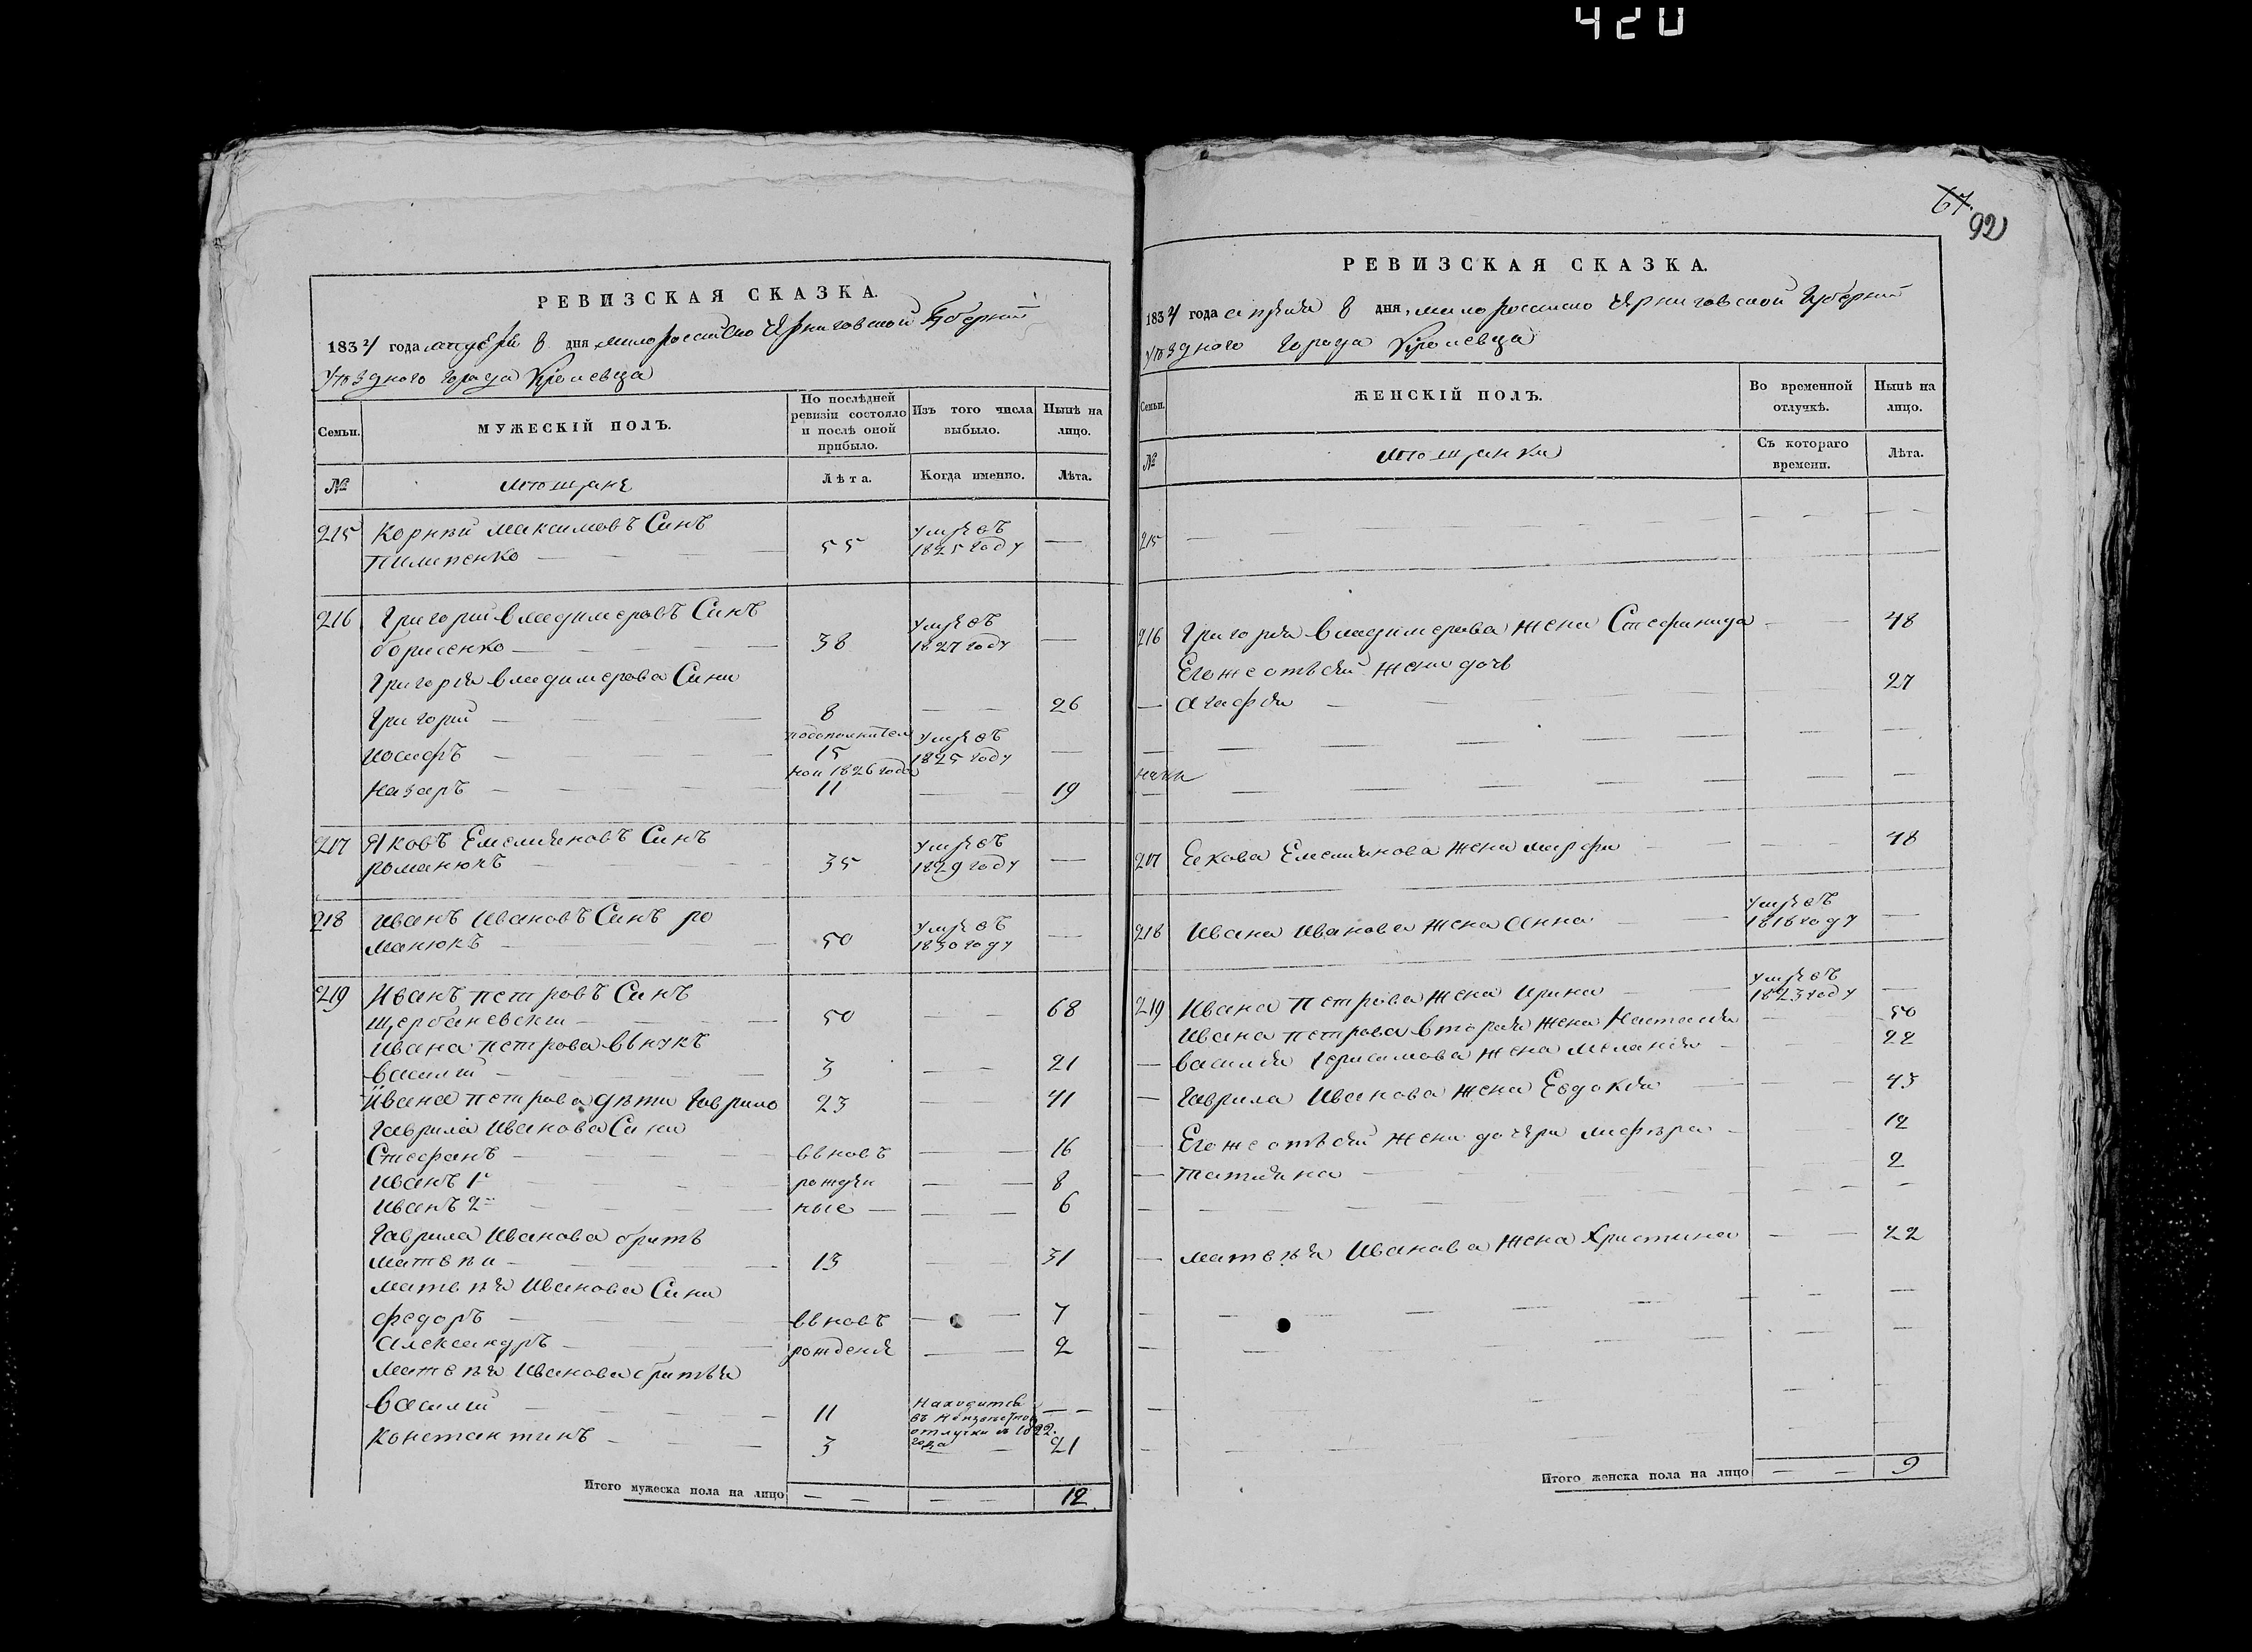 420
67.
92
РЕВИЗСКАЯ СКАЗКА.
1834 года апреля 8 дня, малороссийско Черниговской Губернии
уѣздного города Кролевца
Семьи.
МУЖЕСКІЙ ПОЛЪ.
По послѣдней ревизіи состояло и послѣ оной прибыло.
Изъ того числа выбыло.
Нынѣ на лицо.
№
мѣщане
Лѣта.
Когда именно.
Лѣта.
215 Корнѣй максимовъ Синъ
пилипенко — 55 умре въ 1825 году —
216 Григорий владимеровъ Синъ
борисенко — 38 умре въ 1827 году —
Григория владимерова Сини
Григорий — 8 — — 26
Иосифъ — 15 умре въ 1825 году —
ной 1826 года
Назаръ — 11 — — 19
217 Яковъ Емелияновъ Синъ
романюкъ — 35 умре въ 1829 году —
218 Иванъ Ивановъ Синъ ро
манюкъ — 50 умре въ 1830 году —
219 Иванъ петровъ Синъ
щербаневски — 50 — — 68
Ивана петрова внукъ
василий — 3 — — 21
Ивана петрова дѣти Гаврило 23 — — 41
Гаврила Иванова Сини
Стефанъ — вновъ — — 16
Иванъ 1й — рожден — — 8
Иванъ 2й — ные — — — 6
Гаврила Иванова братъ
матвѣи — 13 — — 31
матвѣя Иванова Сини
федоръ — вновъ — — 7
Александръ — рождение — — 2
матвѣя Иванова братья
василий — 11 Находится въ отлучки 1822. года — —
Константинъ — 3 — — 21
Итого мужеска пола на лицо — — — — 12
РЕВИЗСКАЯ СКАЗКА.
1834 года апреля 8 дня, малороссийско Черниговской Губернии
уѣздного города Кролевца
Семьи.
ЖЕНСКІЙ ПОЛЪ.
Во временной отлучкѣ.
Нынѣ на лицо.
№
мѣщанки
Съ котораго времени.
Лѣта.
215 — — — — — —
216 Григория владимерова жена Стефанида — — 48
Его же отъ сей жени дочь
— Агафия — — 27
217 Якова Емелиянова жена марфа — — 48
218 Ивана Иванова жена Анна — умре въ 1818 году —
219 Ивана петрова жена Ирина — умре въ 1823 году —
Ивана петрова вторая жена Наталия — 50
— василия Герасимова жена мелания — — 22
— Гаврила Иванова жена Евдокия — — 43
— Его же отъ сей жени дочери — 12
— татияна — 2
— матвѣя Иванова жена Христина — — 22
Итого женска пола на лицо — — 9